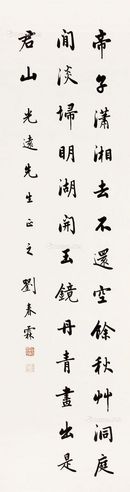 帝子瀟湘去不還空餘秋艸洞庭
間淡掃明湖開玉鏡丹青畫出是
君山
光遠先生正之 劉春霖